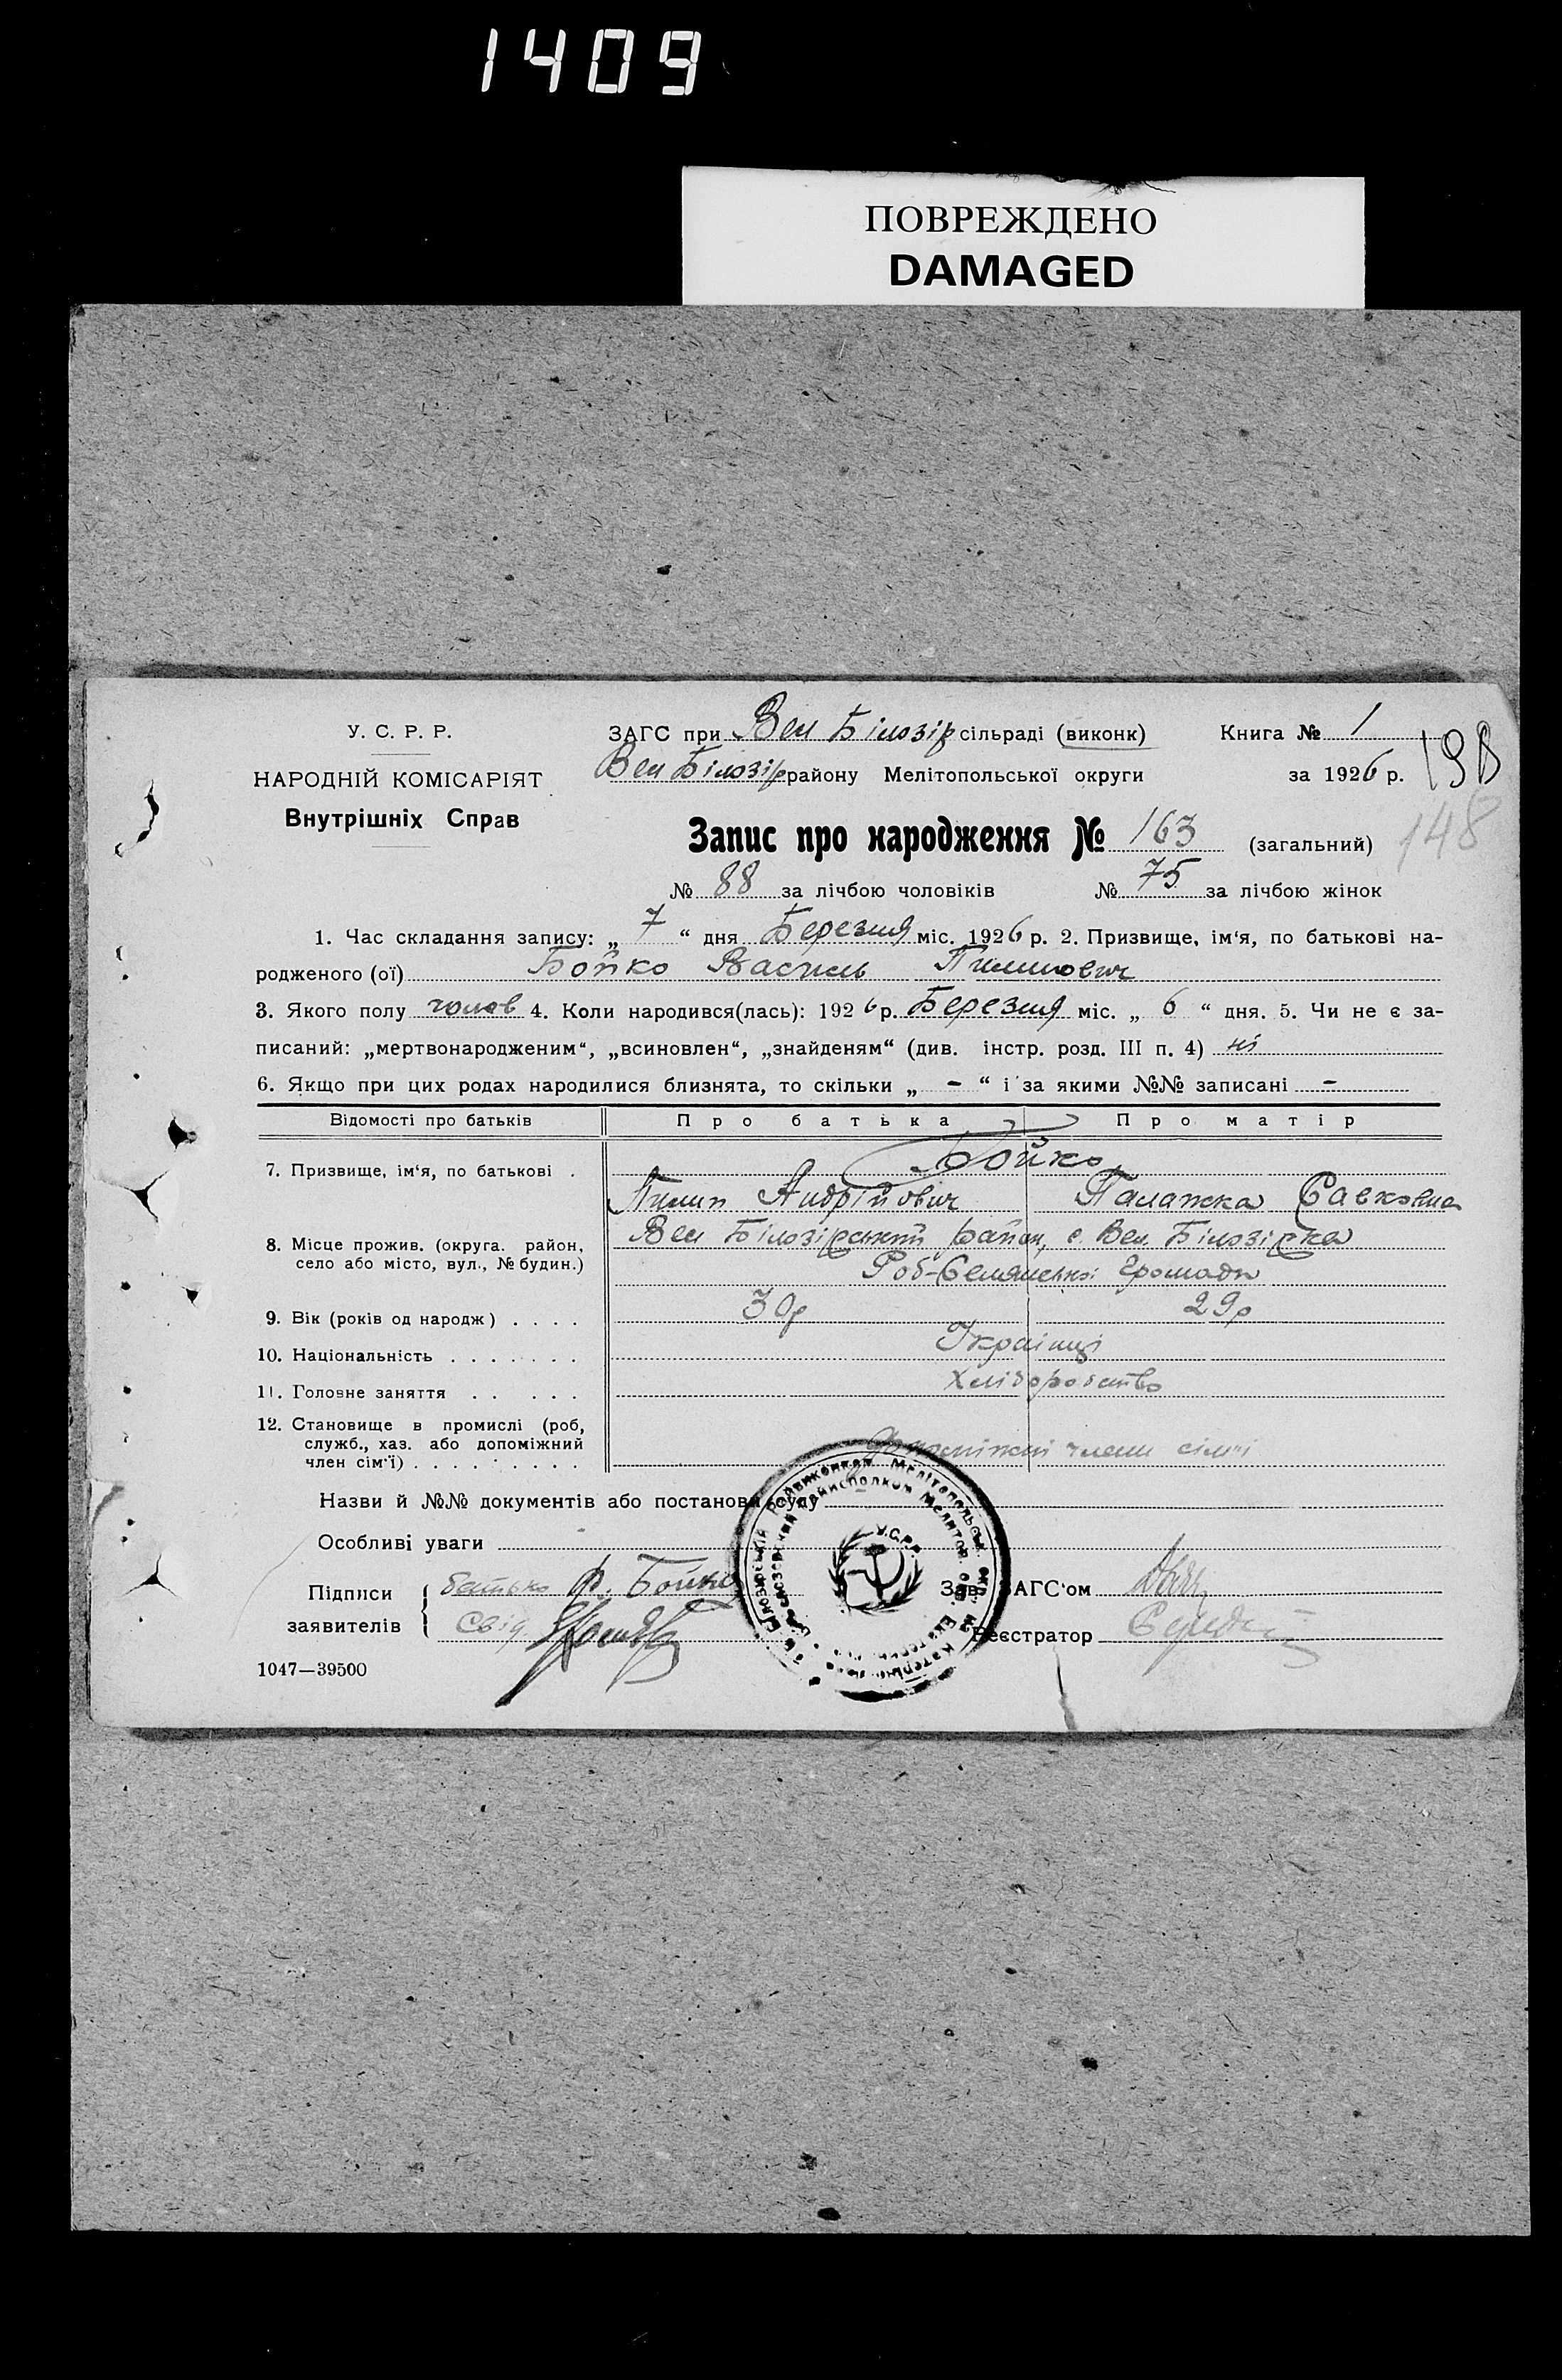 1409
ПОВРЕЖДЕНО
DAMAGED
У. С. Р. Р.
НАРОДНІЙ КОМІСАРІЯТ
Внутрішніх Справ
ЗАГС при Вел Білозір сільраді (виконк)
Книга № 1
Вел Білозір району Мелітопольської округи
за 1926 р.
198
148
Запис про народження № 163 (загальний)
№ 88 за лічбою чоловіків № 75 за лічбою жінок
1. Час складання запису: „ 7 “ дня Березня міс. 1926 р. 2. Призвище, ім‘я, по батькові на-
родженого (ої) Бойко Василь Пилипович
3. Якого полу чолов 4. Коли народився(лась): 1926 р. Березня міс. „ 6 “ дня. 5. Чи не є за-
писаний: „мертвонародженим“, „всиновлен“, „знайденям“ (див. інстр. розд. III п. 4) ні
6. Якщо при цих родах народилися близнята, то скільки „ - “ і за якими №№ записані -
Відомості про батьків Про батька Про матір
7. Призвище, ім‘я, по батькові . Бойко
Пилип Андрійович Палажка Савковна
8. Місце прожив. (округа. район, Вел Білозірський район, с. Вел. Білозірка
село або місто, вул., № будин.) Роб-Селянської громади
9. Вік (років од народж) . . . . 30р 29р
10. Національність . . . . . . . Українці
11. Головне заняття . . . . . Хліборобство
12. Становище в промислі (роб,
служб., хаз. або допоміжний
член сім‘ї) . . . . . . . . . допоміжні члени сім'ї
Назви й №№ документів або постанови суду
Особливі уваги
Підписи
заявителів
батько Ф. Бойко
Свід.
Зав. ЗАГС‘ом
Реєстратор
У.С.Р.Р.
1047—39500